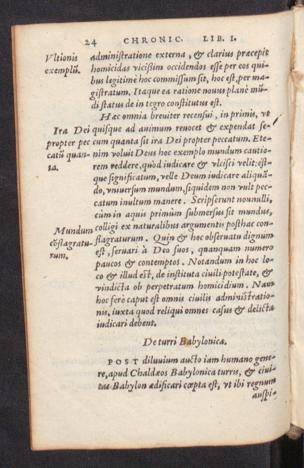 24 CHRONIC. LIB. I.
Vltionis administratione externa, & clarius præcepit
exemplũ. homicidas vicißim occidendos esse per eos qui-
bus legitimè hoc commissum sit, hoc est, per ma-
gistratum. Itaque ea ratione nouus planè mũ-
di status de in tegro constitutus est.
Hæc omnia breuiter recensui, in primis, vt
Ira Dei quisque ad animum reuocet & expendat se-
propter pec cum quanta sit ira Dei propter peccatum. Ete-
catũ quan- nim voluit Deus hoc exemplo mundum cautio-
ta. rem reddere, quòd iudicare & vlcisci velit: est-
que significatum, velle Deum iudicare aliquã-
do, vniuersum mundum, siquidem non vult pec-
catum inultum manere. Scripserunt nonnulli,
cùm in aquis primùm submersus sit mundus,
Mundum colligi ex naturalibus argumentis posthac con-
cõflagratu- flagraturum. Quin & hoc obseruatu dignum
rum. est, seruari à Deo suos, quanquam numero
paucos & contemptos. Notandum in hoc lo-
co & illud est, de instituta ciuili potestate, &
vindicta ob perpetratum homicidium. Nam
hoc ferè caput est omnis ciuilis administratio-
nis, iuxta quod reliqui omnes casus & delicta
iudicari debent.
De turri Babylonica.
POST diluuium aucto iam humano gene-
re, apud Chaldæos Babylonica turris, & ciui-
tas Babylon ædificari cœpta est, vt ibi regnum
auspi-